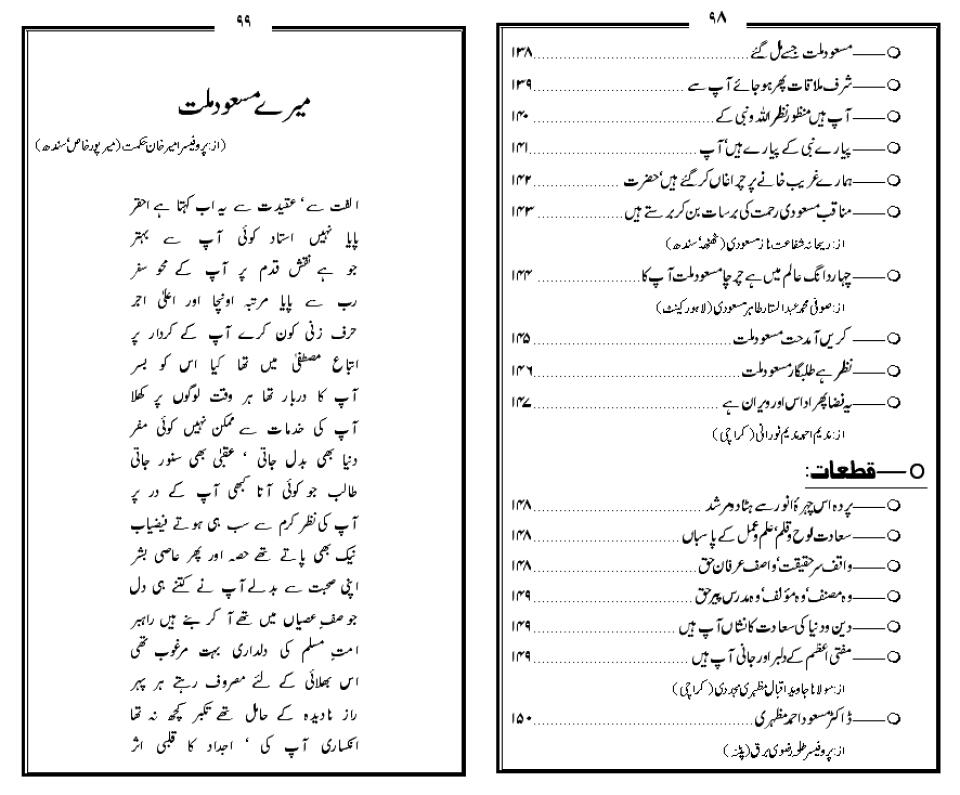 ۹۸
مسعود ملت جسے مل گئے ۱۳۸
شرف ملاقات پھر ہو جائے آپ سے ۱۳۹
آپ ہیں منظور نظر اللہ و نبی کے ۱۴۰
پیارے نبی کے پیارے ہیں‘ آپ ۱۴۱
ہمارے غریب خانے پر چراغاں کر گئے ہیں‘ حضرت ۱۴۲
مناقب مسعودی رحمت کی برسات بن کر برستے ہیں ۱۴۳
از: ریحانہ شفاعت ناز مسعودی (ٹھٹھہ‘ سندھ)
چہار دانگ عالم میں ہے چرچا مسعود ملت آپ کا ۱۴۴
از: صوفی محمد عبدالستار طاہر مسعودی (لاہور کینٹ)
کریں آمدحت مسعود ملت ۱۴۵
نظر ہے طلبگار مسعود ملت ۱۴۶
یہ فضا پھر اداس اور ویران ہے ۱۴۷
از: ندیم احمد ندیم نورانی (کراچی)
قطعات:
پردہ اس چہرۂ انور سے ہٹا دو مرشد ۱۴۸
سعادت لوح و قلم‘ علم و عمل کے پاسباں ۱۴۸
واقف سر حقیقت‘ واصف عرفان حق ۱۴۸
وہ مصنف‘ وہ مؤلف‘ وہ مدرس پیر حق ۱۴۹
دین و دنیا کی سعادت کا نشاں آپ ہیں ۱۴۹
مفتی اعظم کے دلبر اور جانی آپ ہیں ۱۴۹
از: مولانا جاوید اقبال مظہری مجددی (کراچی)
ڈاکٹر مسعود احمد مظہری ۱۵۰
از: پروفیسر طلحہ رضوی برق (پٹنہ)
۹۹
میرے مسعود ملت
(از: پروفیسر امیر خان حکمت (میر پور خاص‘ سندھ)
الفت سے‘ عقیدت سے یہ اب کہتا ہے احقر
پایا نہیں استاد کوئی آپ سے بہتر
جو ہے نقش قدم پر آپ کے محو سفر
رب سے پایا مرتبہ اونچا اور اعلیٰ اجر
حرف زنی کون کرے آپ کے کردار پر
اتباع مصطفیٰ میں تھا کیا اس کو بسر
آپ کا دربار تھا ہر وقت لوگوں پر کھلا
آپ کی خدمات سے ممکن نہیں کوئی مفر
دنیا بھی بدل جاتی ‘ عقبیٰ بھی سنور جاتی
طالب جو کوئی آتا کبھی آپ کے در پر
آپ کی نظر کرم سے سب ہی ہوتے فیضیاب
نیک بھی پاتے تھے حصہ اور پھر عاصی بشر
اپنی صحبت سے بدلے آپ نے کتنے ہی دل
جو صفِ عصیاں میں تھے آ کر بنے ہیں راہبر
امتِ مسلم کی دلداری بہت مرغوب تھی
اس بھلائی کے لئے مصروف رہتے ہر پہر
راز نادیدہ کے حامل تھے تکبر کچھ نہ تھا
انکساری آپ کی ‘ اجداد کا قلبی اثر